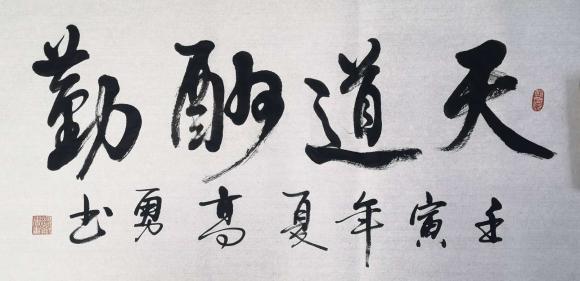 天道酬勤
壬寅年夏高勇书